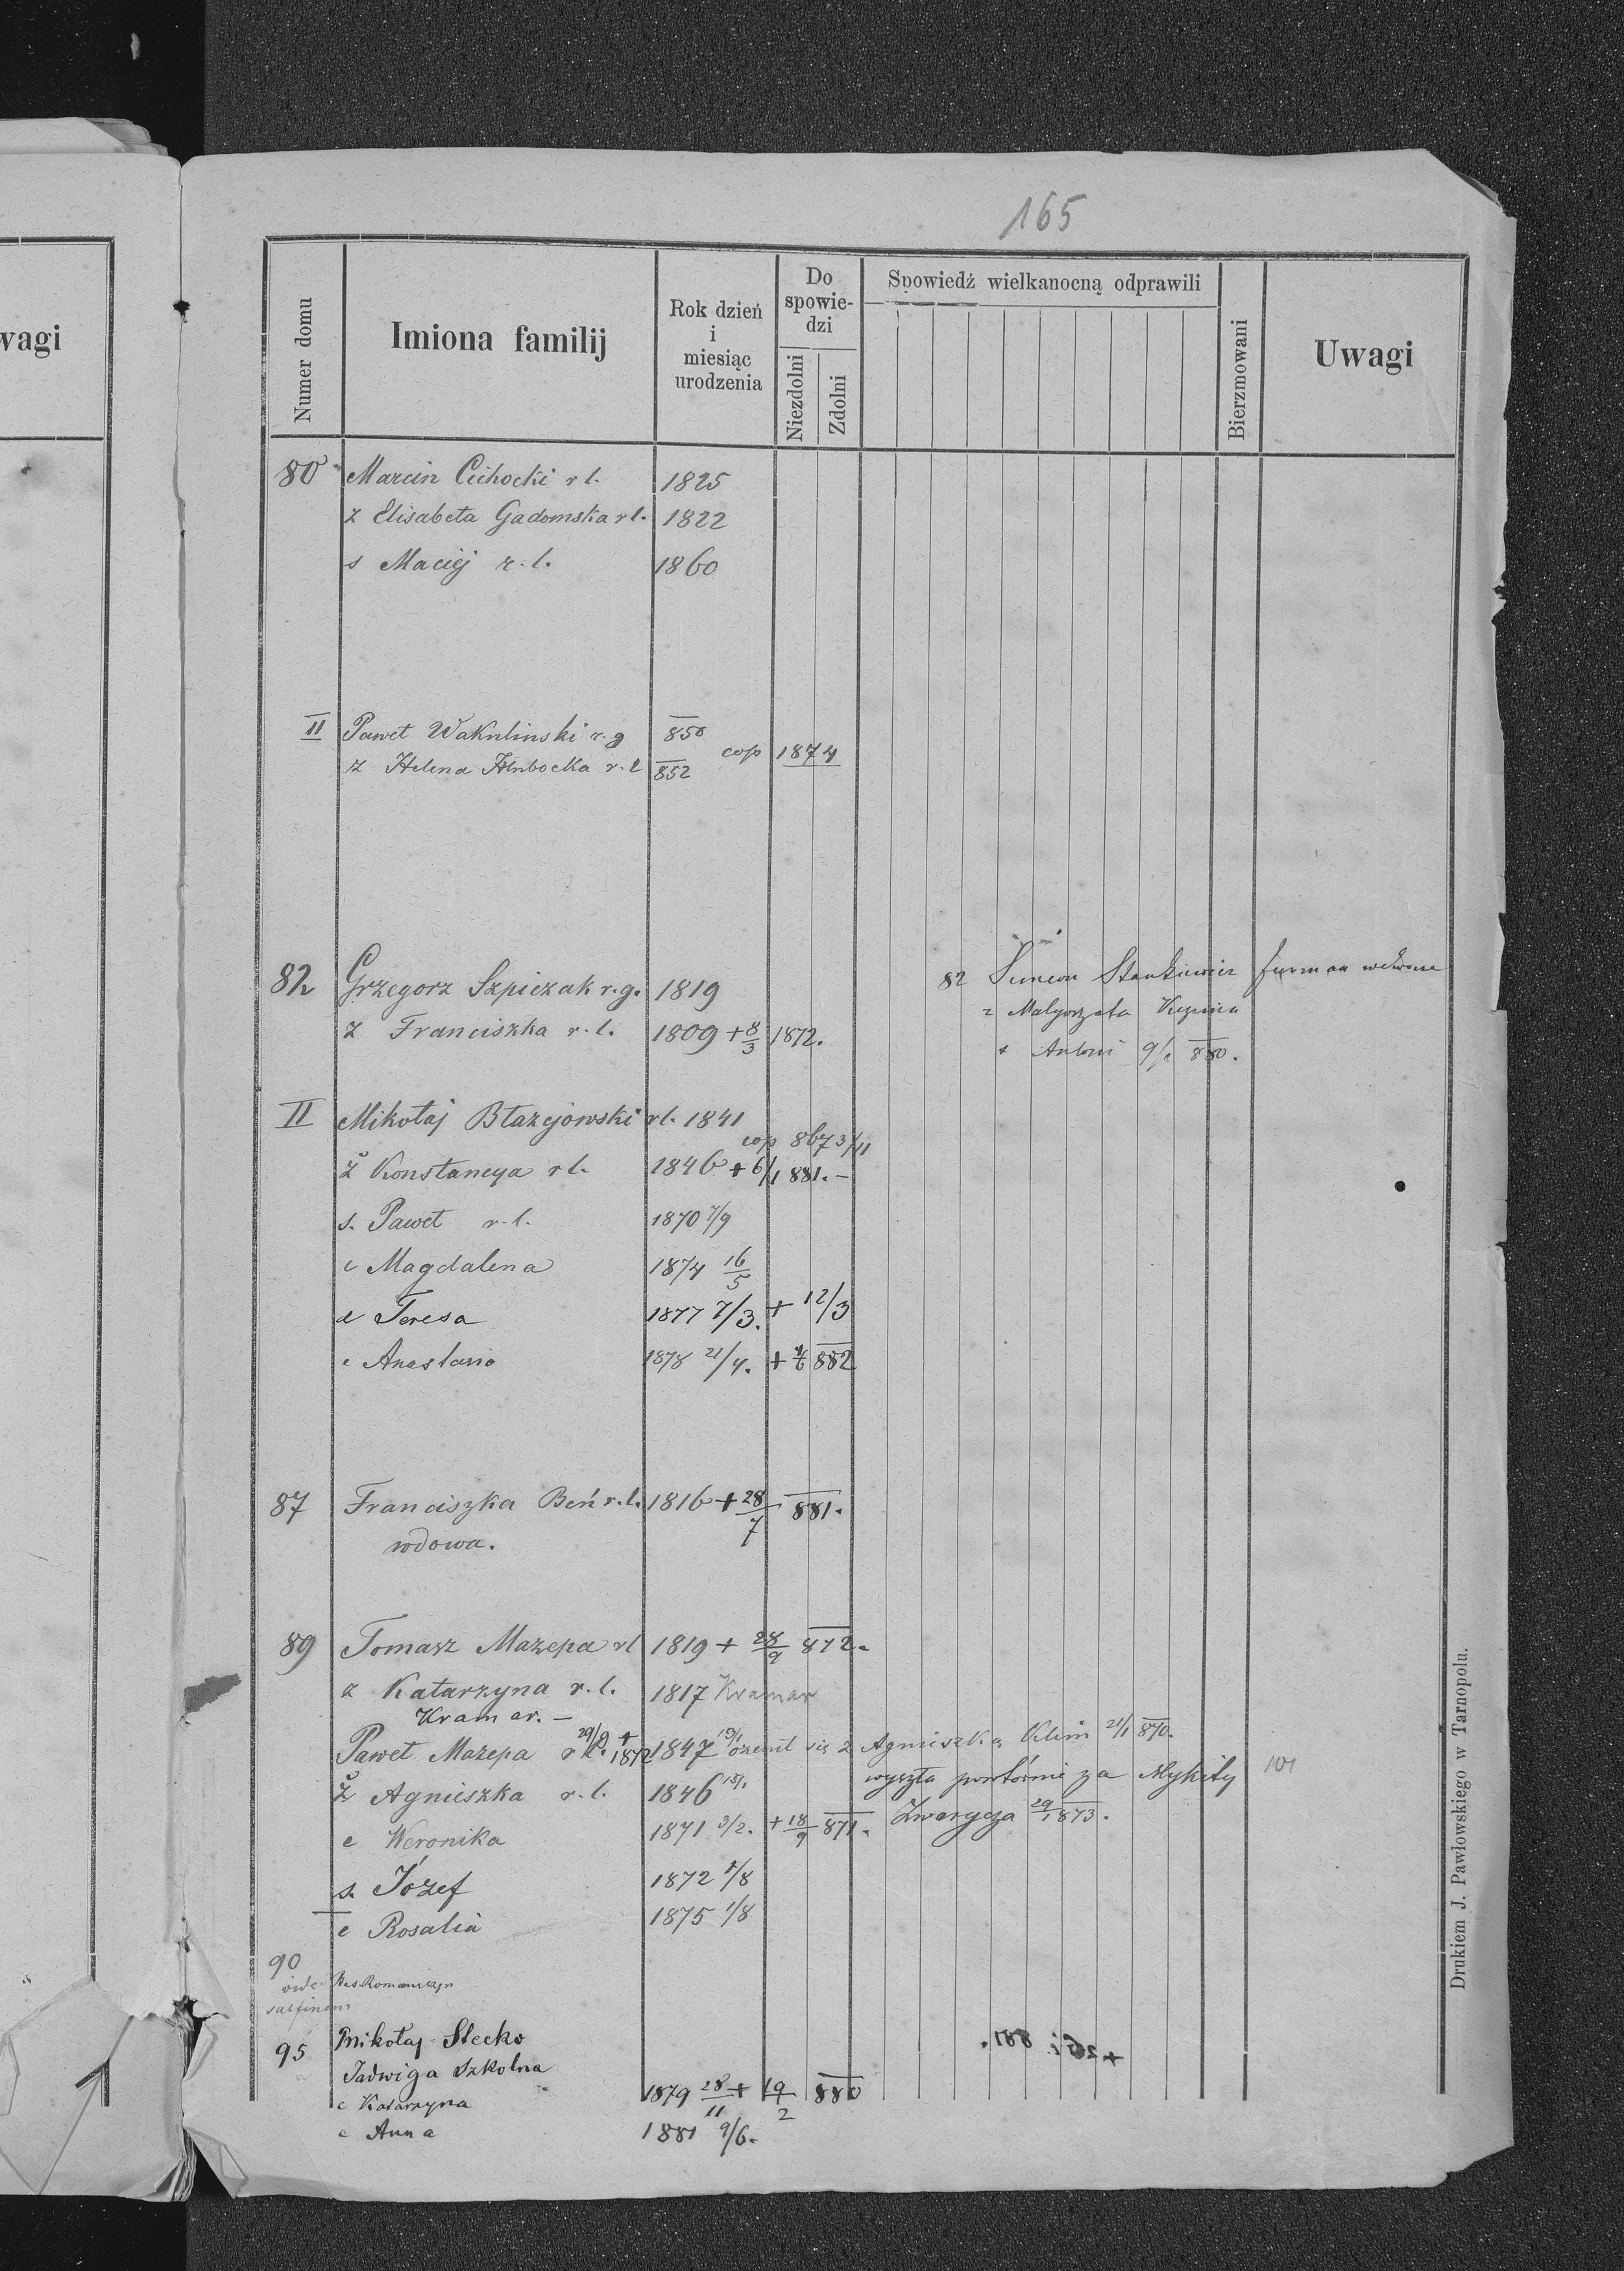 wagi
165
Numer domu
Imiona familij
Rok dzień i miesiąc urodzenia
Do spowiedzi
Niezdolni
Zdolni
Spowiedź wielkanocną odprawili
Bierzmowani
Uwagi
80 Marcin Cichocki r l. 1825
ż Elisabeta Gadomska r l. 1822
s Maciej r. l. 1860
II Paweł Wakulinski r. g 850
cop 1874
ż Helena Hłubocka r. l 852
82 Grzegorz Szpiczak r. g. 1819
ż Franciszka r. l. 1809 + 8/3 1872.
82 Stankiewicz furman
ż Małgorzata
s Antoni 880.
II Mikołaj Błażejowski r l. 1841
cop 867 3/11
ż Konstancya r l. 1846 + 6/1 881. —
s. Paweł r. l. 1870 7/9
c Magdalena 1874 16/5
c Teresa 1877 7/3. + 12/3
c Anastasia 1878 21/4. + 882
87 Franciszka Beń r. l. 1816 + 28/7 881.
wdowa.
89 Tomasz Mazepa r l 1819 + 28/9 872.
ż Katarzyna r. l. 1817 Kramar
Kramar. —
Paweł Mazepa r l. 29/9 + 1872 1847 ożenił się z Agnieszką Klim 21/1 870.
ż Agnieszka r. l. 1846 wyszła powtórnie za Mykitę 101
Zwarycza 29/1 873.
c Weronika 1871 3/2. + 18/9 871.
s. Józef 1872 1/8
c Rosalia 1875 1/8
90
vide
ad finem
95 Mikołaj Stecko
+ 26/1 881.
Jadwiga Szkolna
c Katarzyna 1879 28/11 + 19/2 880
c Anna 1881 9/6.
Drukiem J. Pawłowskiego w Tarnopolu.